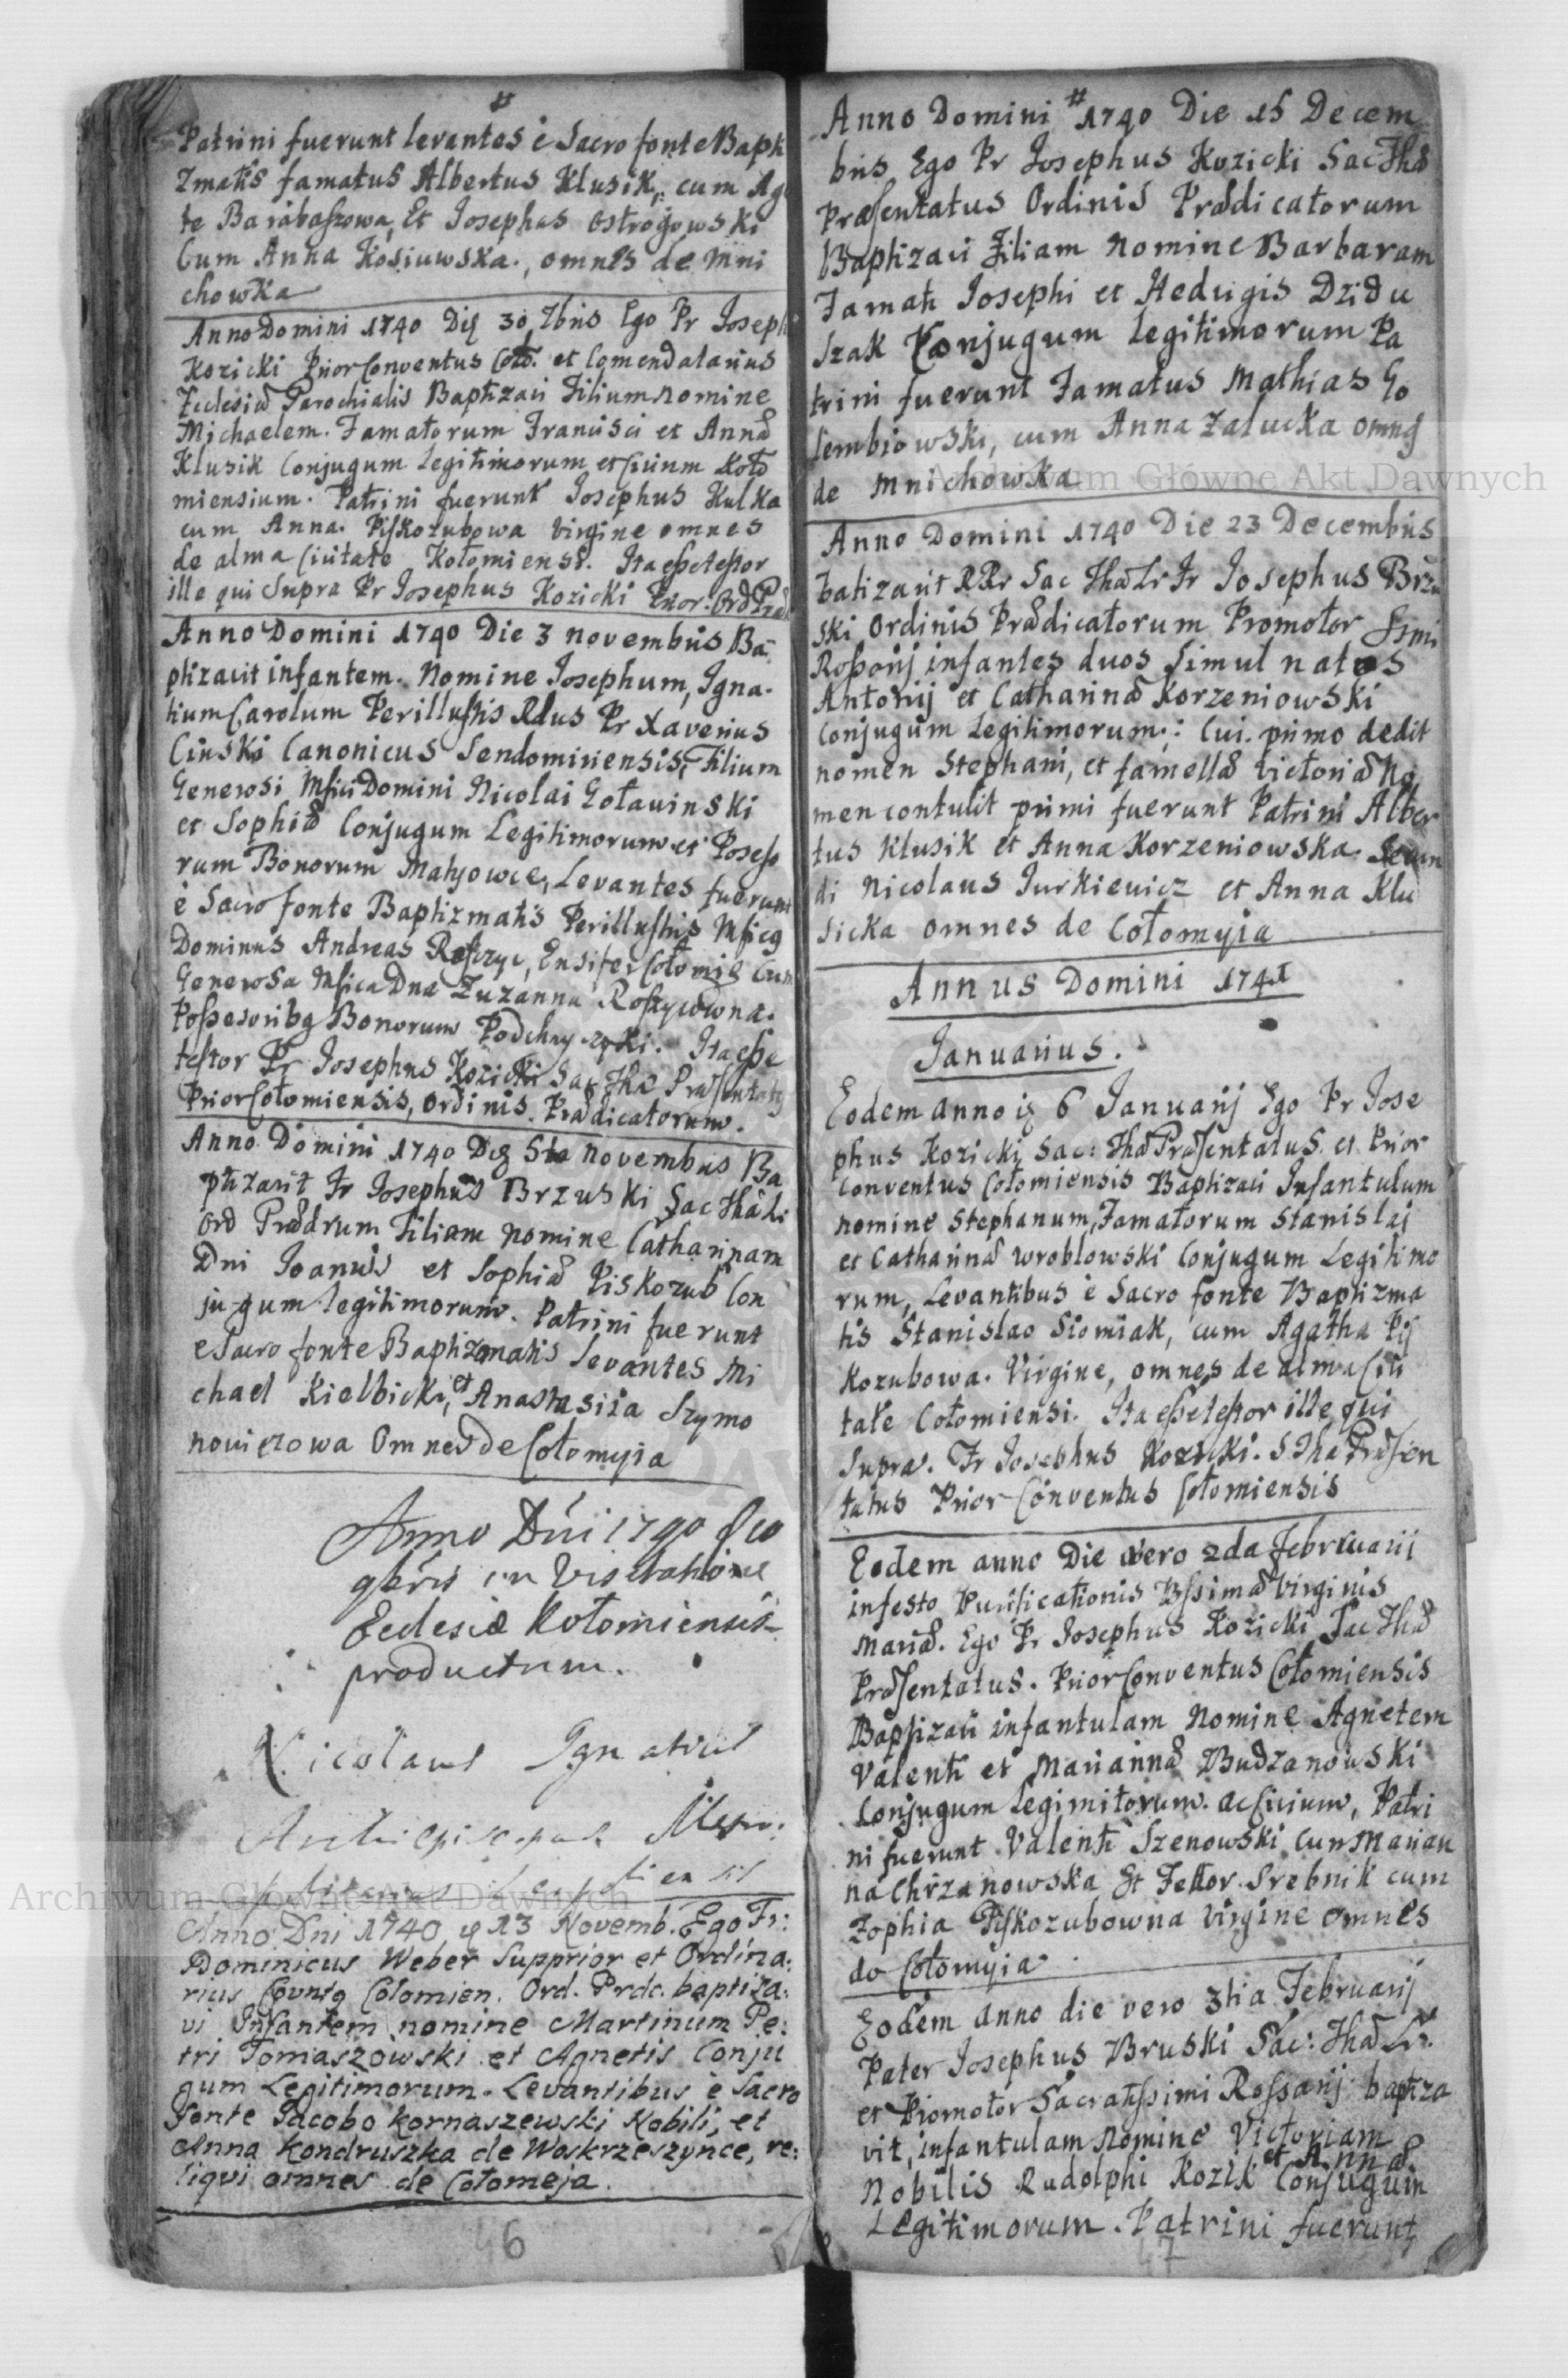 #
Patrini fuerunt levantes è Sacro fonte Bapti
zmatis famatus Albertus Klusik, cum Aga
te Barabaszowa, Et Josephus Ostrogowski
Cum Anna Kosiuwska., omnes de Mni
chowka
Anno Domini 1740 Die 30 7bris Ego Pr Joseph
Kozicki Prior Conventus Coło. et Comendatarius
Ecclesiæ Parochialis Baptizavi Filium nomine
Michaelem. Famatorum Francisci et Annæ
Klusik Conjugum legitimorum et Civium Koło
miensium. Patrini fuerunt Josephus Kulka
cum Anna. Piskozubowa Virgine omnes
de alma Civitate Kołomiensi. Ita esse testor
ille qui Supra Pr Josephus Kozicki Prior. Ord Præd
Anno Domini 1740 Die 3 novembris Ba-
ptizavit infantem. Nomine Josephum, Igna-
tium Carolum Perillustris Rdus Pr Xaverius
Canonicus Sendomiriensis, Filium
Generosi Mfici Domini Nicolai Goławinski
et Sophiæ Conjugum Legitimorum et Posesso
rum Bonorum Matyowce, Levantes fuerunt
è Sacro fonte Baptizmatis Perillustris Mficg
Dominus Andreas Ensifer Cołomie Cum
Generosa Mfica Dna Zuzanna
Possesoribg Bonorum Ita esse
testor Pr Josephus Kozicki Sac Thæ Præsentatg
Prior Cołomiensis, Ordinis Prædicatorum.
Anno Domini 1740 Die 5te Novembris Ba
ptizavit Fr Josephus Brzuski Sac Thæ Lr
Ord Prædrum Filiam nomine Catharinam
Dni Joanis et Sophiæ Piskozub Con
jugum legitimorum. Patrini fuerunt
e Sacro fonte Baptizmatis levantes Mi
chael Kielbicki, et Anastasiia Szymo
nowiczowa Omnes de Cołomyia
Anno Dni 1740
9bris in Visitatione
Ecclesiæ Kołomiensis
productum.
Nicolaus Ignatius
Archiepiscopus
Anno Dni 1740 d 13 Novemb. Ego Fr:
Dominicus Weber Supprior et Ordina:
rius Covntg Cołomien. Ord. Prdc. baptiza:
vi Infantem nomine Martinum Pe:
tri Tomaszowski et Agnetis Conju
gum Legitimorum. Levantibus è Sacro
Fonte Jacobo Kornaszewski Nobili, et
Anna Kondruszka de Woskrzeszynce, re:
liqui omnes de Cołomeja.
46
#
Anno Domini 1740 Die 15 Decem
bris Ego Pr Josephus Kozicki Sac Thæ
Præsentatus Ordinis Prædicatorum
Baptizavi Filiam Nomine Barbaram
Famati Josephi et Hedvigis Dzidu
szak Conjugum legitimorum Pa
trini fuerunt Famatus Mathias Go
lembiowski, cum Anna Załucka omng
de Mnichowka
Anno Domini 1740 Die 23 Decembris
batizavit RPr Sac Thæ Lr Fr Josephus Brzu
ski Ordinis Prædicatorum Promotor Ssmi
Rosarij infantes duos Simul natos
Antonij et Catharinæ Korzeniowski
Conjugum Legitimorum: Cui. primo dedit
nomen Stephani, et famellæ Victoriæ No
men contulit primi fuerunt Patrini Alber
tus Klusik et Anna Korzeniowska. Secun
di Nicolaus Jurkiewicz et Anna Klu
sicka omnes de Cołomyia
Annus Domini 1741
Januarius.
Eodem anno ig 6 Januarij Ego Pr Jose
phus Kozicki Sac: Thæ Præsentatus et Prior
Conventus Cołomiensis Baptizavi Infantulum
nomine Stephanum, Famatorum Stanislai
et Catharinæ Wroblowski Conjugum Legitimo
rum, Levantibus è Sacro fonte Baptizma
tis Stanislao Siomiak, cum Agatha Pis
kozubowa. Virgine, omnes de alma Civi
tate Cołomiensi. Ita esse testor ille qui
Supra. Fr Josephus Kozicki. S Thæ Præsen
tatus Prior Conventus Cołomiensis
Eodem anno Die vero 2da Februarii
in festo Purificationis Bssimæ Virginis
Mariæ. Ego Pr Josephus Kozicki Sac Thæ
Præsentatus. Prior Conventus Cołomiensis
Baptizavi infantulam Nomine Agnetem
Valenti et Mariannæ Budzanowski
Conjugum Legimitorum. ac Civium, Patri
ni fuerunt Valenti Szenowski Cum Marian
na Chrzanowska Et Fettor Srebnik cum
Zophia Piskozubowna Virgine omnes
de Cołomyia
Eodem anno die vero 3tia Februarij
Pater Josephus Bruski Sac: Thæ Lr.
et Promotor Sacratissimi Rossarij baptiza
vit, infantulam Nomine Victoriam
et Annæ
Nobilis Rudolphi Kozik Conjugum
Legitimorum. Patrini fuerunt
47
Archiwum Główne Akt Dawnych
Archiwum Główne Akt Dawnych